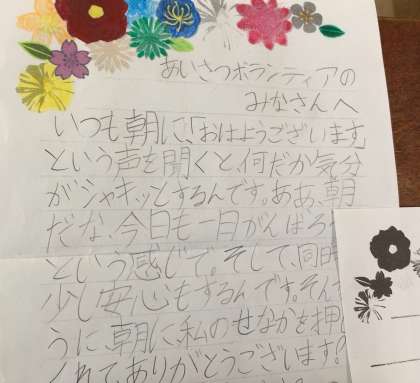 あいさつボランティアの
みかさんへ
いつも朝に、「おはようございます」
という声を聞くと、何だか気分
がシャキッとするんです。ああ、朝
だな、今日も一日がんばろ
という感じで。そして、同時
少し安心もするんです。そんな
うに、朝に、私のせなかを押し
くれて、ありがとうございます。